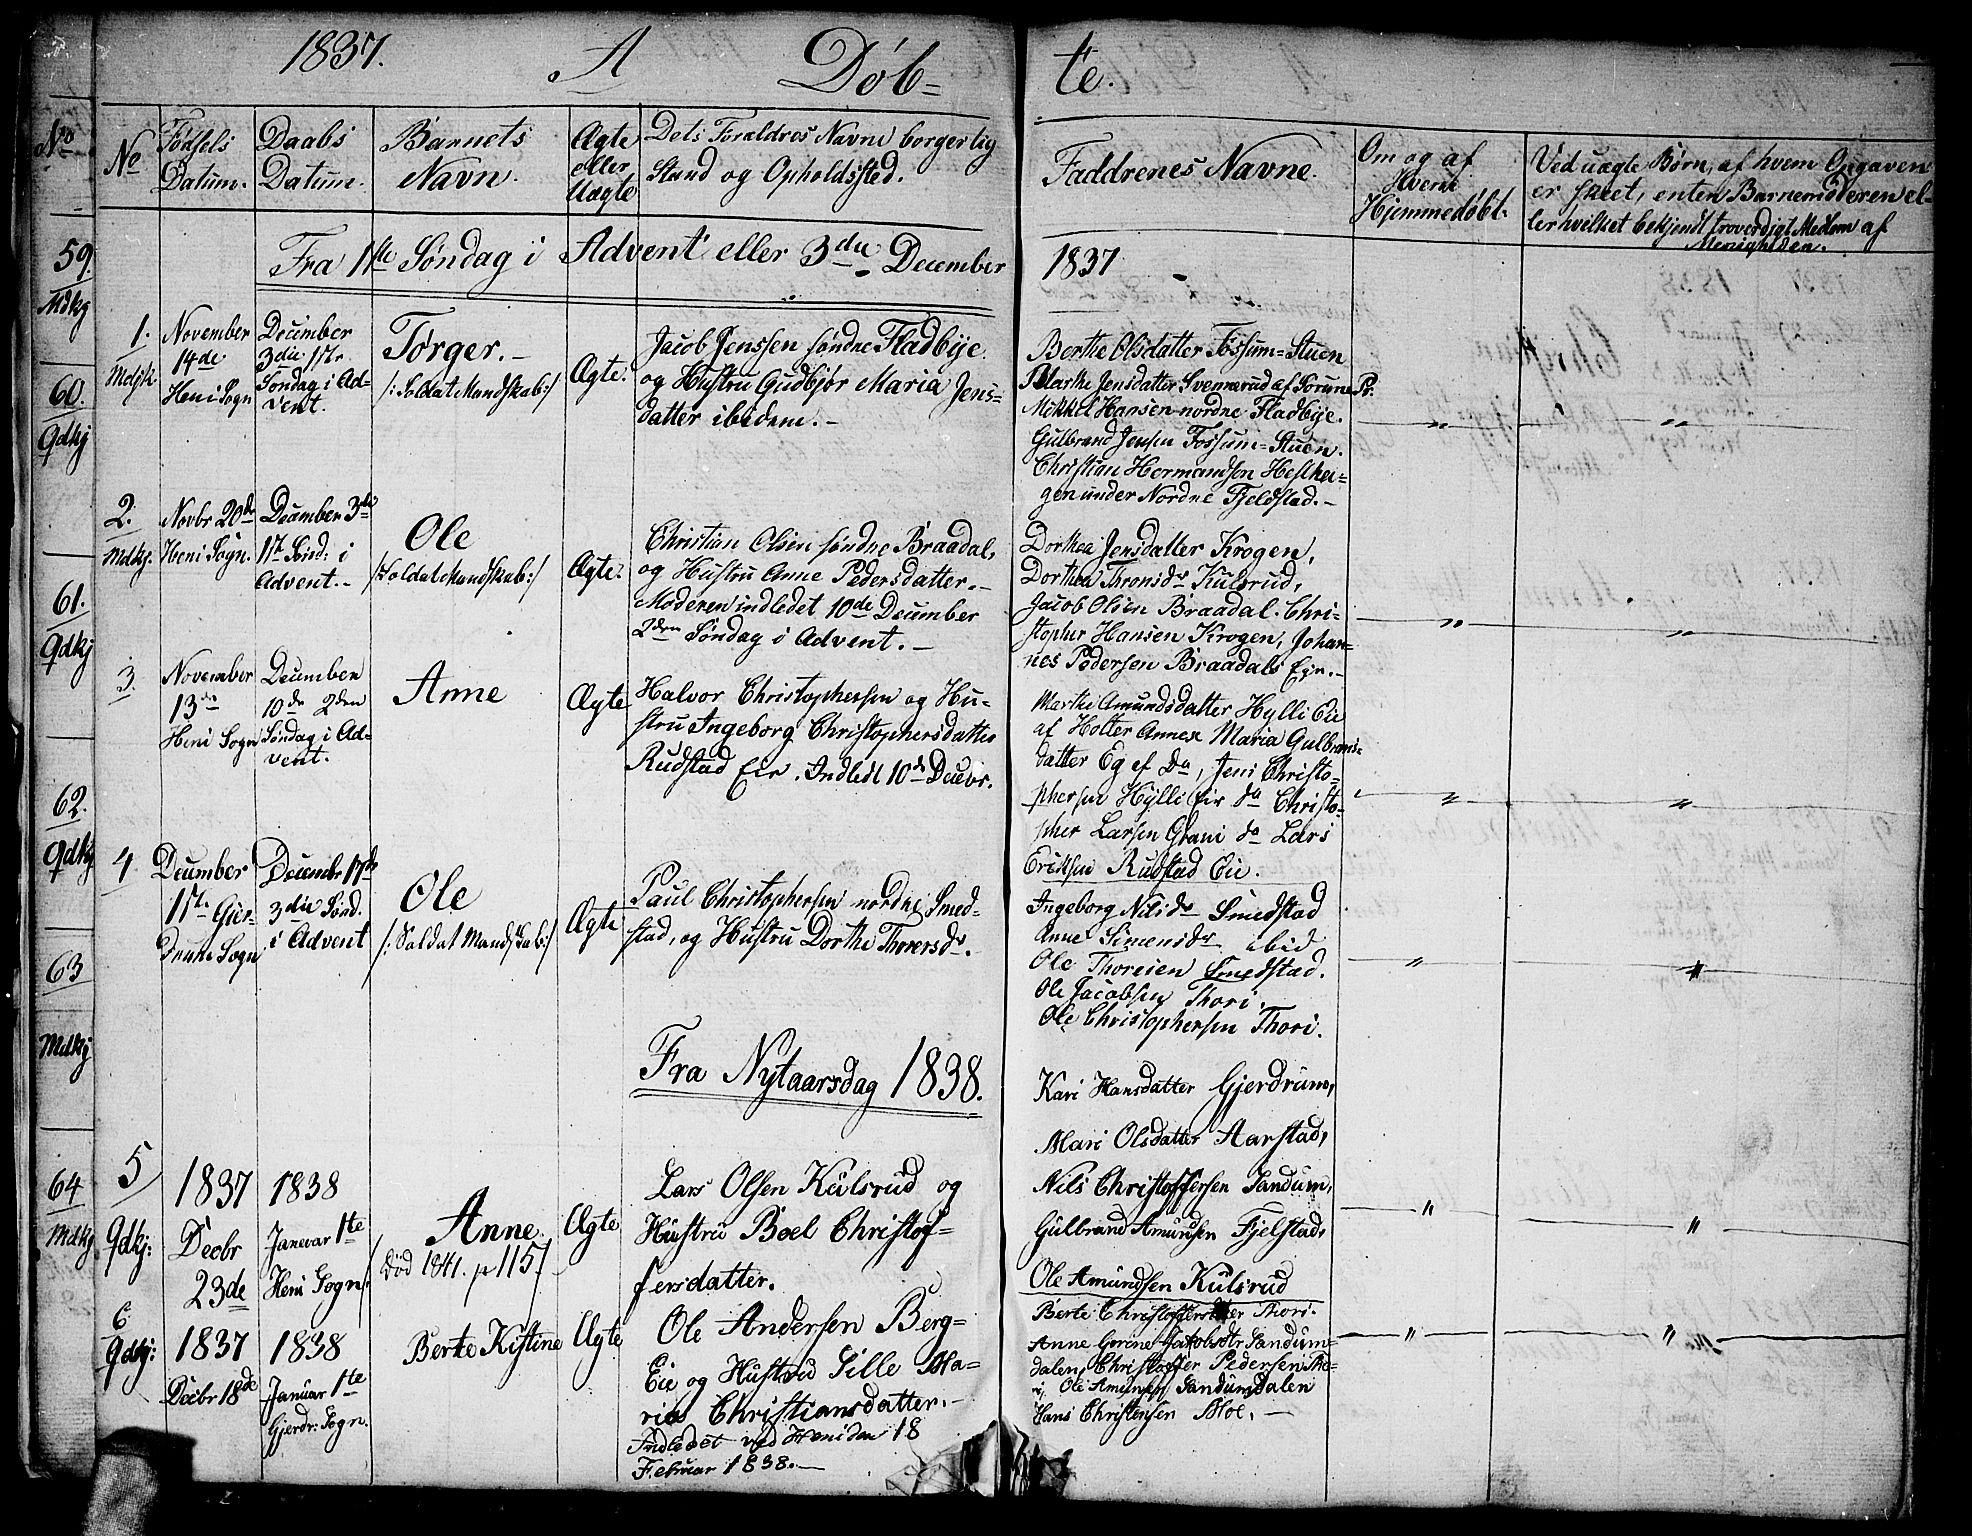 1837. A Døb= te.
No
59.
Mdkj
60.
Qdkj
61.
Qdkj
62.
Qdkj
63
Mdkj
64
Mdkj
No
Fødsels
Datum.
Daabs
Datum.
Barnets
Navn.
Ægte
eller
Uægte
Dets Forældres Navne borgerlig
Stand og Opholdsted.
Faddrenes Navne.
Om og af
Hvem
Hjemmedøbt.
Ved uægte Børn, af hvem Opgaven
er skeet, enten Barnemoderen el-
ler hvilket bekjendt troværdigt Medlem af
Menigheden.
Fra 1ste Søndag i Advent eller 3die December 1837
1.
Mdkj
November
14de
Heni Sogn
December
3die 1ste
Søndag i Ad-
vent.
Torger.-
/: Soldat Mandskab:/
Ægte.
Jacob Jenssen søndre Fladbye
og Hustru Gudbjør Maria Jens=
datter ibidem.-
Berthe Olsdatter Fossum=Stuen
Marthe Jensdatter Svennerud af Sørum Pr:
Mikkel Hansen nordre Fladbye.
Gulbrand Jensen Fossum=Stuen.
Christian Hermandsen Hesthei=
gen under Nordre Fjeldstad.-
" "
2.
Mdkj.
Novbr 20de
Heni Sogn.
December 3die
1ste Sønd: i
Advent.-
Ole
/: Soldat Mandskab:/
Ægte.
Christian Olsen søndre Braadal,
og Hustru Anne Pedersdatter.-
Moderen indledet 10de December
2den Søndag i Advent.-
Dorthea Jensdatter Krogen,
Dorthea Thronsdr Kulsrud,
Jacob Olsen Braadal. Chri-
stopher Hansen Krogen, Johan=
nes Pedersen Braadals Eje.-
" "
3.
November
13de
Heni Sogn
December
10de 2den
Søndag i Ad-
vent.
Anne
Ægte
Halvor Christophersen og Hu-
stru Ingeborg Christophersdatter
Rudstad Eie. Indledt 10de Decbr.
Marthe Amundsdatter Hylli Eie
af Holter Annex Maria Gulbrans=
datter Eg af Do, Jens Christo=
phersen Hylli Eie do Christo-
pher Larsen Grani do Lars
Eriksen Rudstad Eie.
" "
4
December
1ste Gjer-
drums Sogn
Decembr 17de
3die Sønd.
i Advent
Ole
/: Soldat Mandskab:/
Ægte
Paul Christophersen nordre Smed-
stad, og Hustru Dorthe Thorersdr.
Ingeborg Nilsdr Smedstad
Anne Simensdr ibid
Ole Thoresen Smedstad.
Ole Jacobsen Thori.
Ole Christophersen Thori.
" "
Fra Nytaarsdag 1838.
5
Qdkj:
1837
Decbr
23de
1838
Janevar 1ste
Heni Sogn
Anne
/Død 1841. p 115/
Ægte
Lars Olsen Kulsrud og
Hustru Boel Christof-
fersdatter.
Kari Hansdatter Gjerdrum,
Mari Olsdatter Aarstad,
Nils Christoffersen Sandum,
Gulbrand Amunsen Fjelstad,
Ole Amundsen Kulsrud
" "
6
Qdkj:
1837
Decbr 18de
1838
Januar 1ste
Gjerdr: Sogn.
Berte Kistine
Ægte
Ole Andersen Berg=
Eie og Hustru Sille Ma-
ria Christiansdatter.-
Indledet ved Heni den 18
Februar 1838.-
Berte Christoffersdtter Thori.
Anne Gorine Jakobsdtr Sandum-
dalen, Christoffer Pedersen Tho-
ri, Ole Amunsen Sandumdalen
Hans Christensen Moe.-
" "